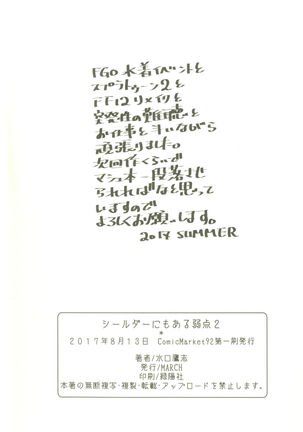 FGO水着イベントと
スプラトゥーン2と
FF12リメイクと
突発性の難聴と
お仕事を手いながら
頑張りました。
次回作くらいで
マシュ本一段落させ
られればなと思って
いますので
よろしくお願いします。
2017 SUMMER
シールダーにもある弱点2
*
2017年8月13日 ComicMarket92第一刷発行
著者/水口鷹志
発行/MARCH
印刷/緑陽社
本著の無断複写・複製・転載・アップロードを禁止します。